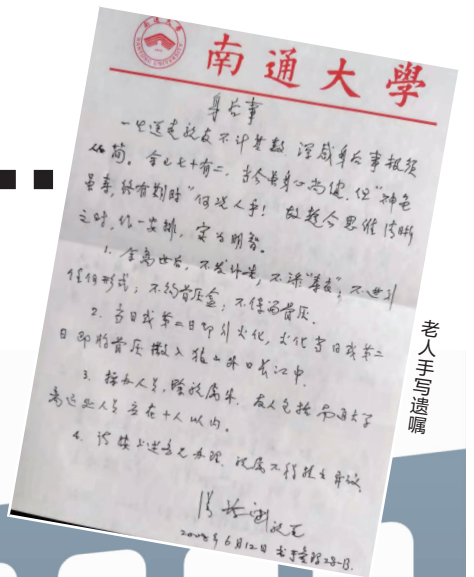 南通大學
身后事
一生送走親友不计其数，深感身后事极须
从简。余已七十有二，当今虽身心尚健，但“神龟
虽寿，终有期时”何况人乎！故趁今思维清晰
之时，作一安排，实为明智。
1. 余离世后，不发讣告，不录“寿衣”，不进行
任何形式；不购骨灰盒，不保留骨灰。
2. 当日或第二日即行火化，火化当日或第二
日即将骨灰撒入狼山外口长江中。
3. 接办人员，除亲属外，友人包括南通大学
人员应在十人以内。
4. 请按上述意见办理，亲属不得提出异议
2008年6月12日
老人手写遗嘱